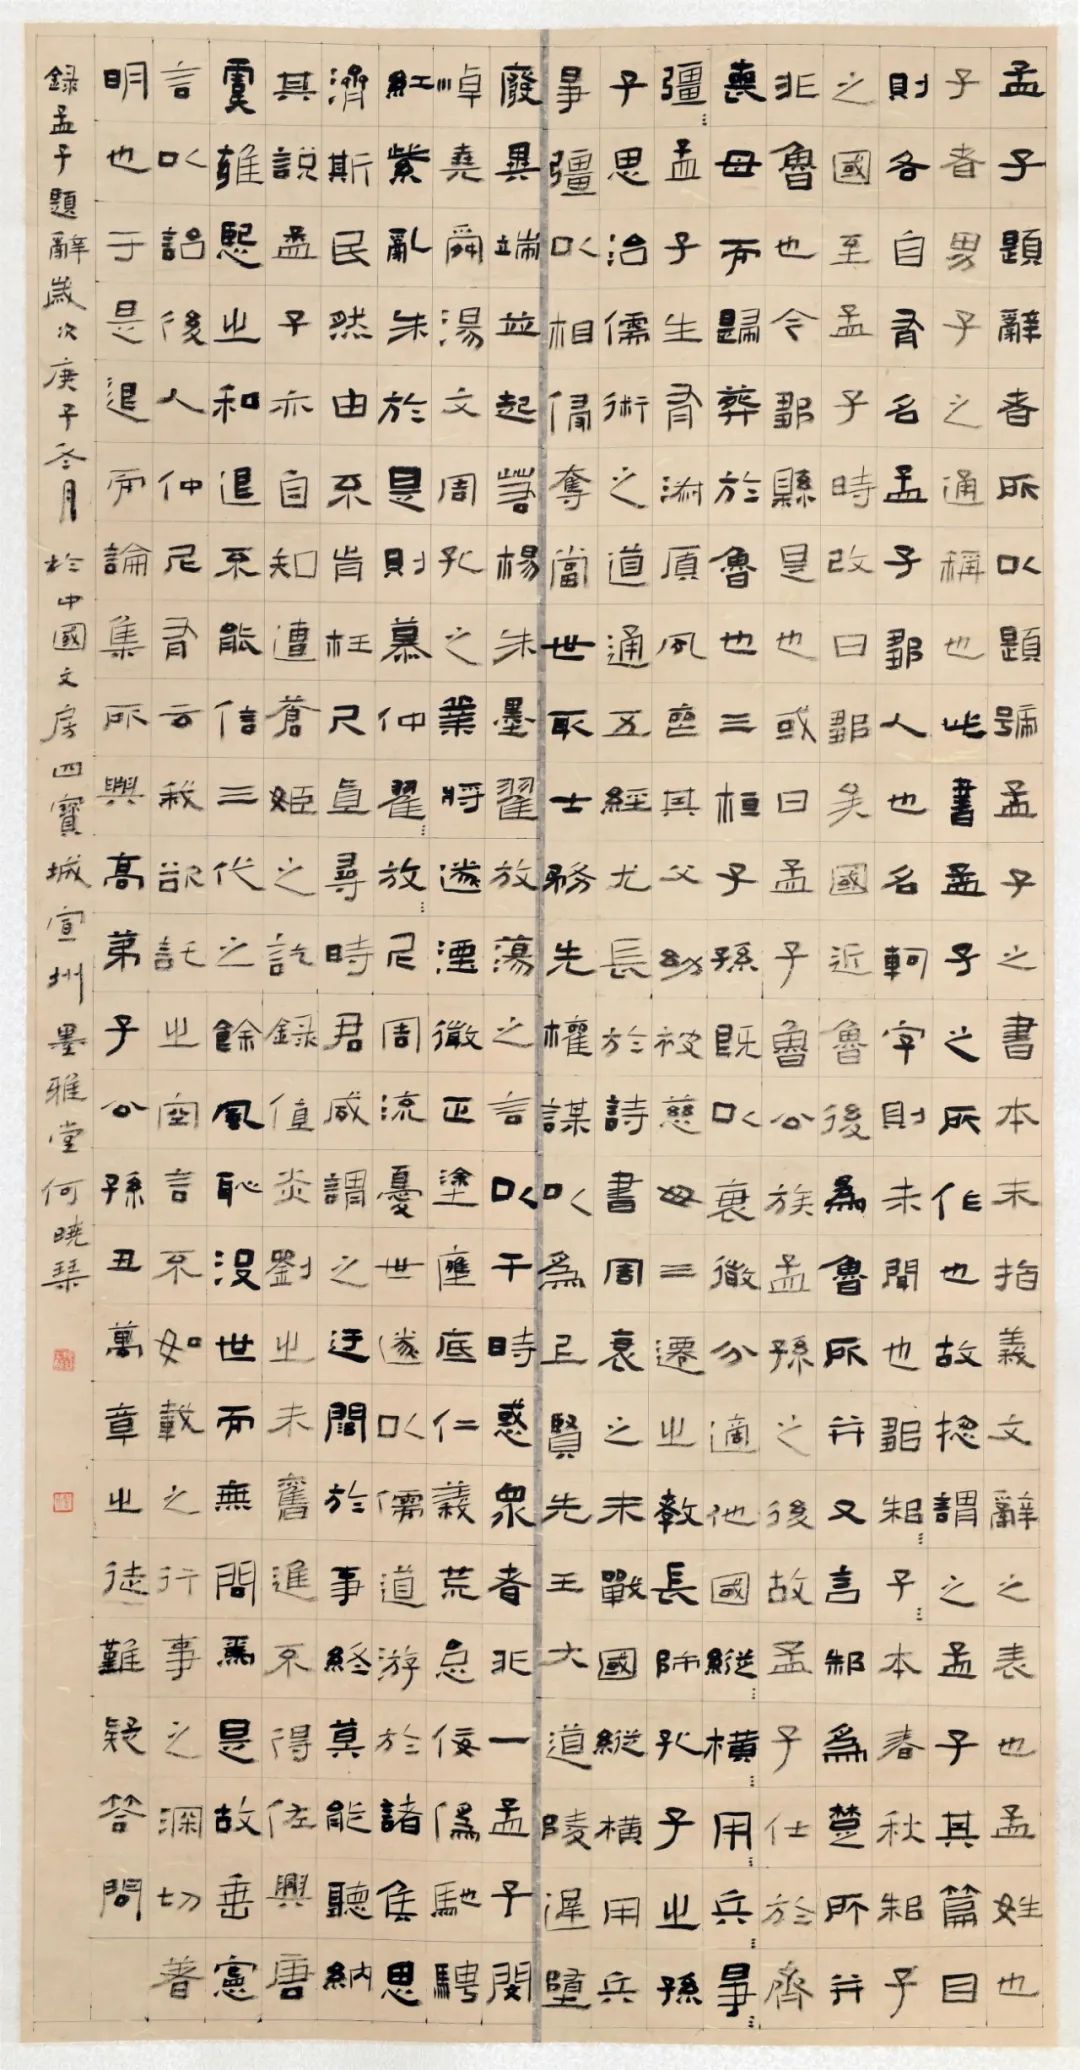 孟子題辭者所以題號孟子之書本末指義文辭之表也孟姓也
子者男子之通稱也此書孟子之所作也故揔謂之孟子其篇目
則各自有名孟子鄒人也名軻字則未聞也鄒邾子本春秋邾子
之國至孟子時改曰鄒矣國近魯後為魯所并又言邾為楚所并
非魯也今鄒縣是也或曰孟子魯公族孟孫之後故孟子仕於齊
喪母而歸葬於魯也三桓子孫既以衰微分適他國縱橫用兵爭
彊孟子生有淑質夙喪其父幼被慈母三遷之教長師孔子之孫
子思治儒術之道通五經尤長於詩書周衰之末戰國縱橫用兵
爭彊以相侵奪當世取士務先權謀以為上賢先王大道陵遲墮
廢異端並起若楊朱墨翟放蕩之言以干時惑眾者非一孟子閔
悼堯舜湯文周孔之業將遂湮微正塗壅底仁義荒怠佞偽馳騁
紅紫亂朱於是則慕仲翟放尼周流憂世遂以儒道游於諸侯思
濟斯民然由不肯枉尺直尋時君咸謂之迂闊於事終莫能聽納
其說孟子亦自知遭蒼姬之訖錄值炎劉之未奮進不得佐興唐
虞雍熙之和退不能信三代之餘風恥沒世而無問焉是故垂憲
言以詒後人仲尼有云我欲託之空言不如載之行事之深切著
明也于是退而論集所與高弟子公孫丑萬章之徒難疑答問
錄孟子題辭歲次庚子冬月於中國文房四寶城宣州墨雅堂何曉琴